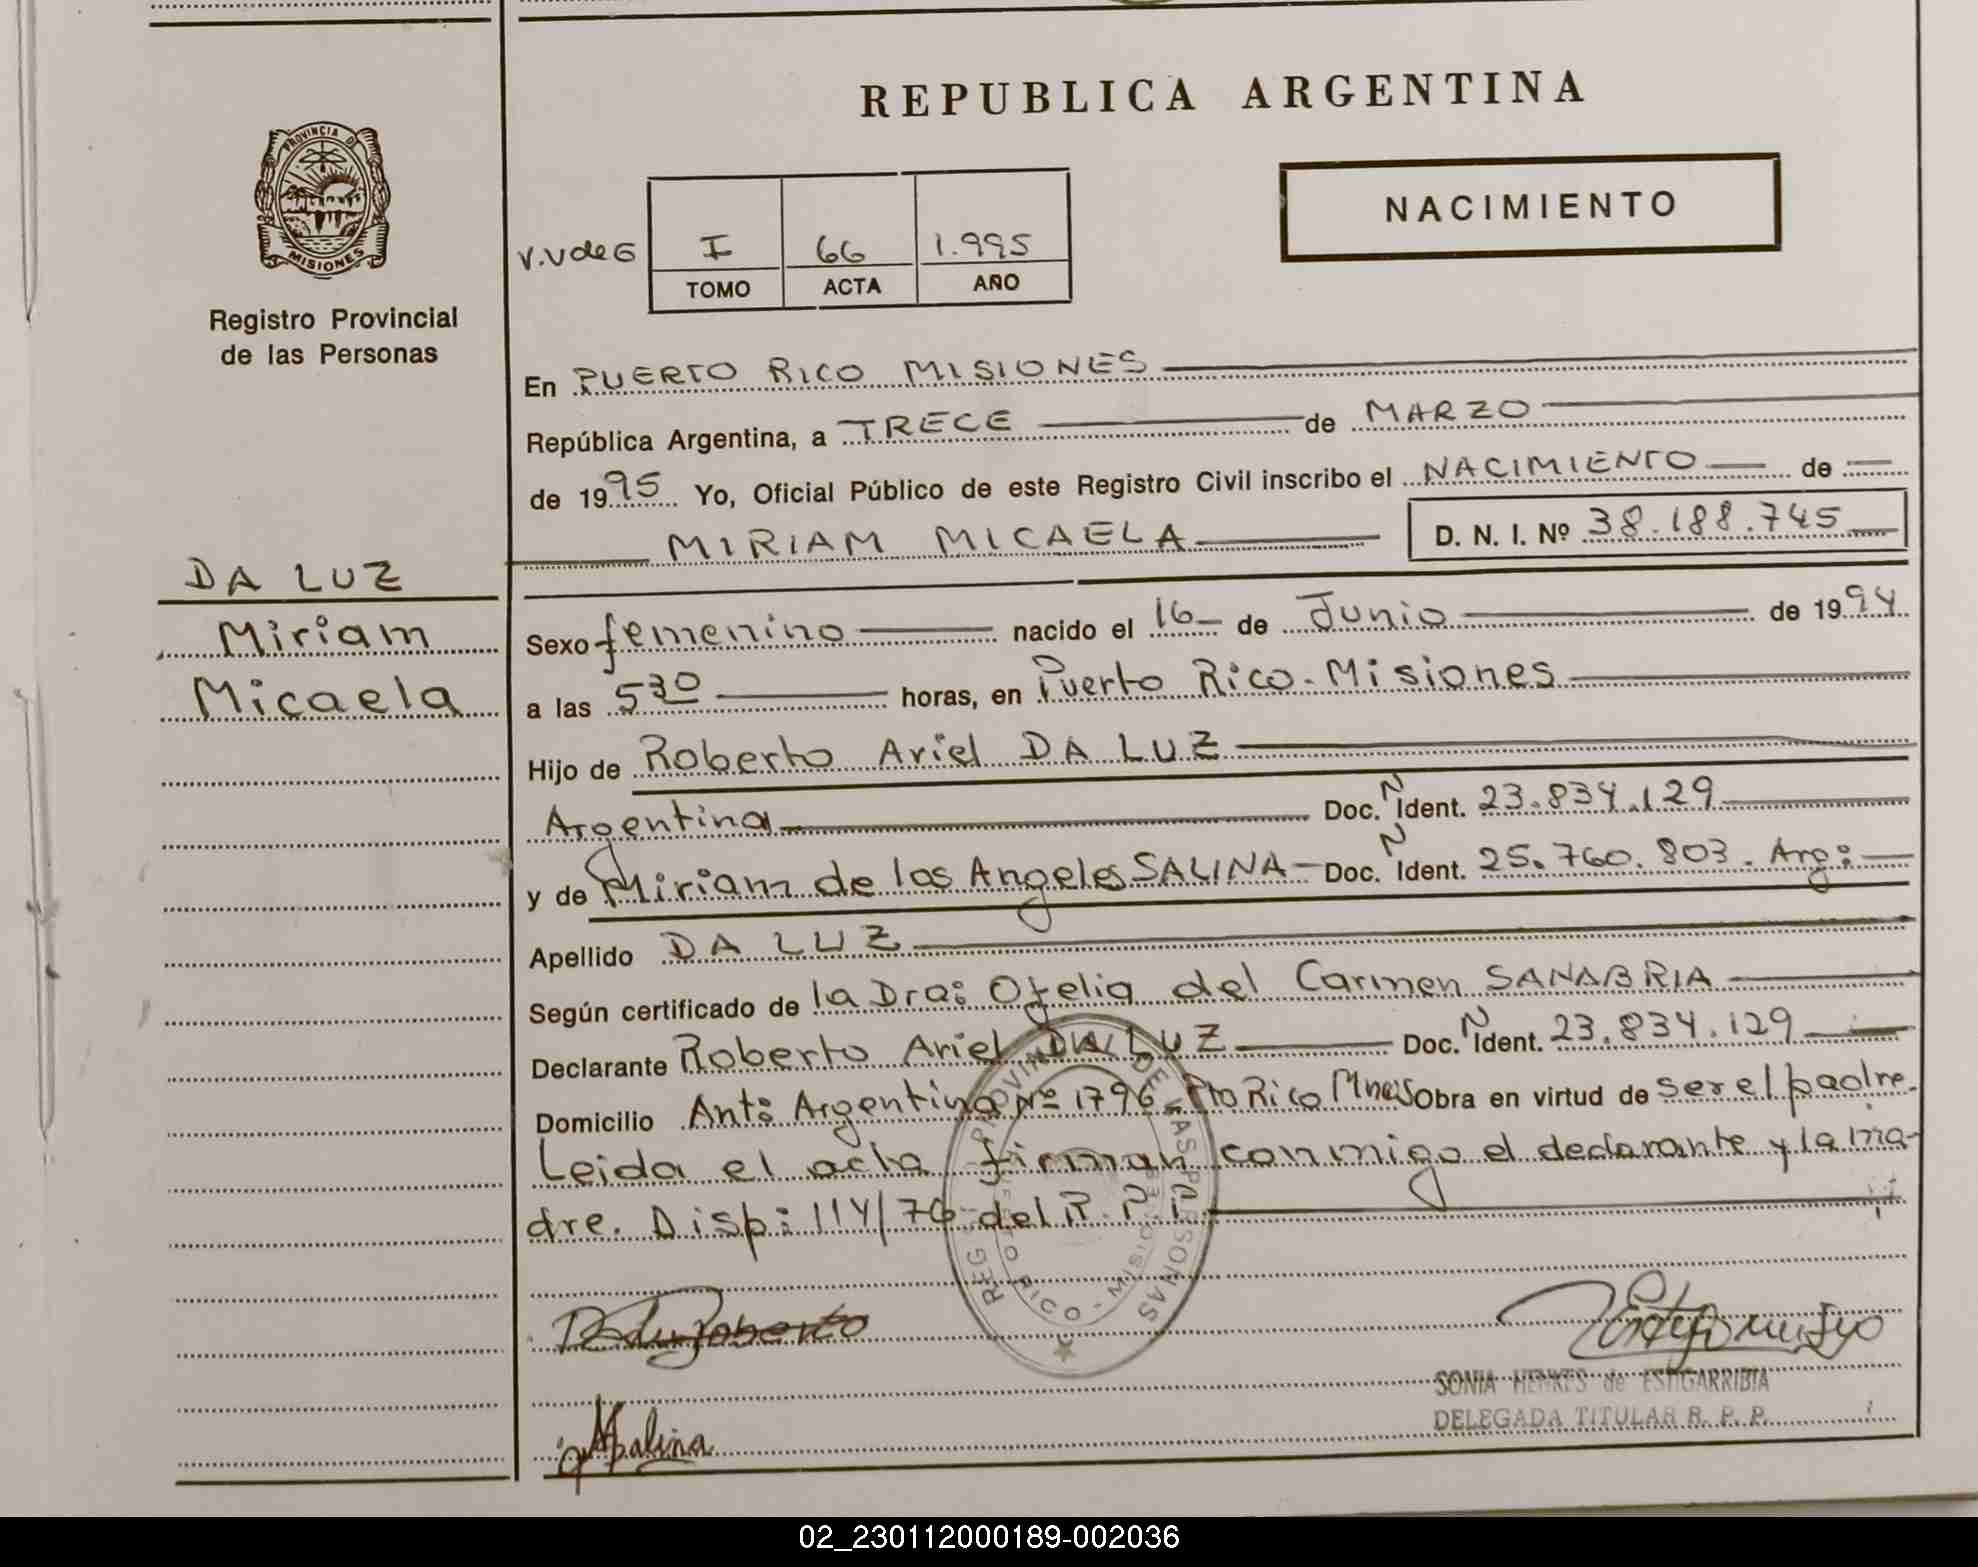 REPUBLICA ARGENTINA
PROVINCIA DE MISIONES
Registro Provincial
de las Personas
NACIMIENTO
V.V de G
I 66 1.995
TOMO ACTA AÑO
En PUERTO RICO MISIONES
República Argentina, a TRECE de MARZO
de 1995 Yo, Oficial Público de este Registro Civil inscribo el NACIMIENTO de
MIRIAM MICAELA D. N. I. Nº 38.188.745
DA LUZ
Miriam
Micaela
Sexo femenino nacido el 16 de Junio de 1994
a las 530 horas, en Puerto Rico - Misiones
Hijo de Roberto Ariel DA LUZ
Argentina Doc. N Ident. 23.834.129
y de Miriam de los Angeles SALINA - Doc. N Ident. 25.760.803. Arg:
Apellido DA LUZ
Según certificado de la Dra: Ofelia del Carmen SANABRIA
Declarante Roberto Ariel DA LUZ Doc. N Ident. 23.834.129
Domicilio Ant: Argentina Nº 1796 Pto Rico Mnes Obra en virtud de ser el padre.
Leida el acta firman conmigo el declarante y la ma-
dre. Disp: 114/76 del R.P.P.
REG. PROVIN DE LAS PERSONAS
PUERTO RICO - MISIONES
Roberto
Salina
SONIA HENKES de ESTIGARRIBIA
DELEGADA TITULAR R. P. P.
02_230112000189-002036